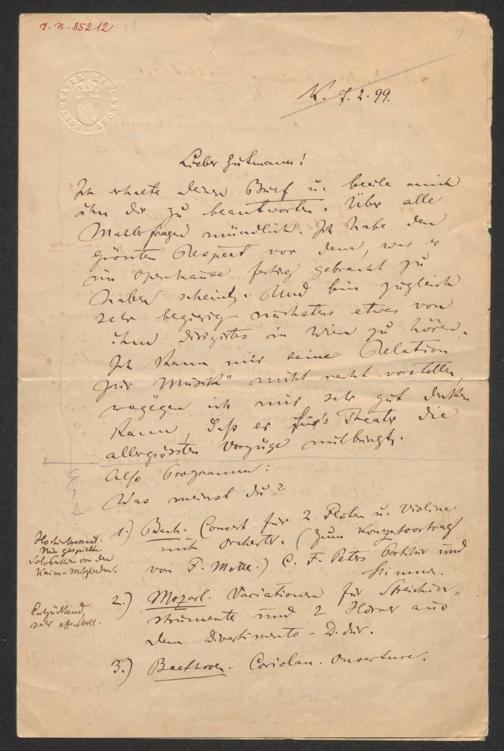 I. N. 85212
K. 7.2.99.
Lieber Gutmann!
Ich erhalte deinen Brief u. beeile mich
ihn dir zu beantworten. Über alle
Mahlerfragen mündlich. Ich habe den
grössten Respect vor dem, was er
im Opernhause fertig gebracht zu
haben scheint. Und bin zugleich
sehr begierig nächstens etwas von
ihm dirigirtes in Wien zu hören.
Ich kann mir seine Relation
"zur Musik" nicht recht vorstellen,
wogegen ich mir sehr gut denken
kann, daß er für's Theater die
allergrössten Vorzüge mitbringt.
Also Programm:
Was meinst du?
1.) Bach. Concert für 2 Flöten u. Violine
mit Orchester. (Zum Konzertvortrag
von F. Mottl.) C. F. Peters Partitur und
Stimmen.
Hochinteressant.
Nie gespielt.
Solobesetzt von den
Kaim-Mitgliedern.
2.) Mozart. Variationen für Streichin-
strumente und 2 Hörner aus
dem Divertimento - D. dur.
Entzückend
sehr effectvoll.
3.) Beethoven. Coriolan. Ouverture.